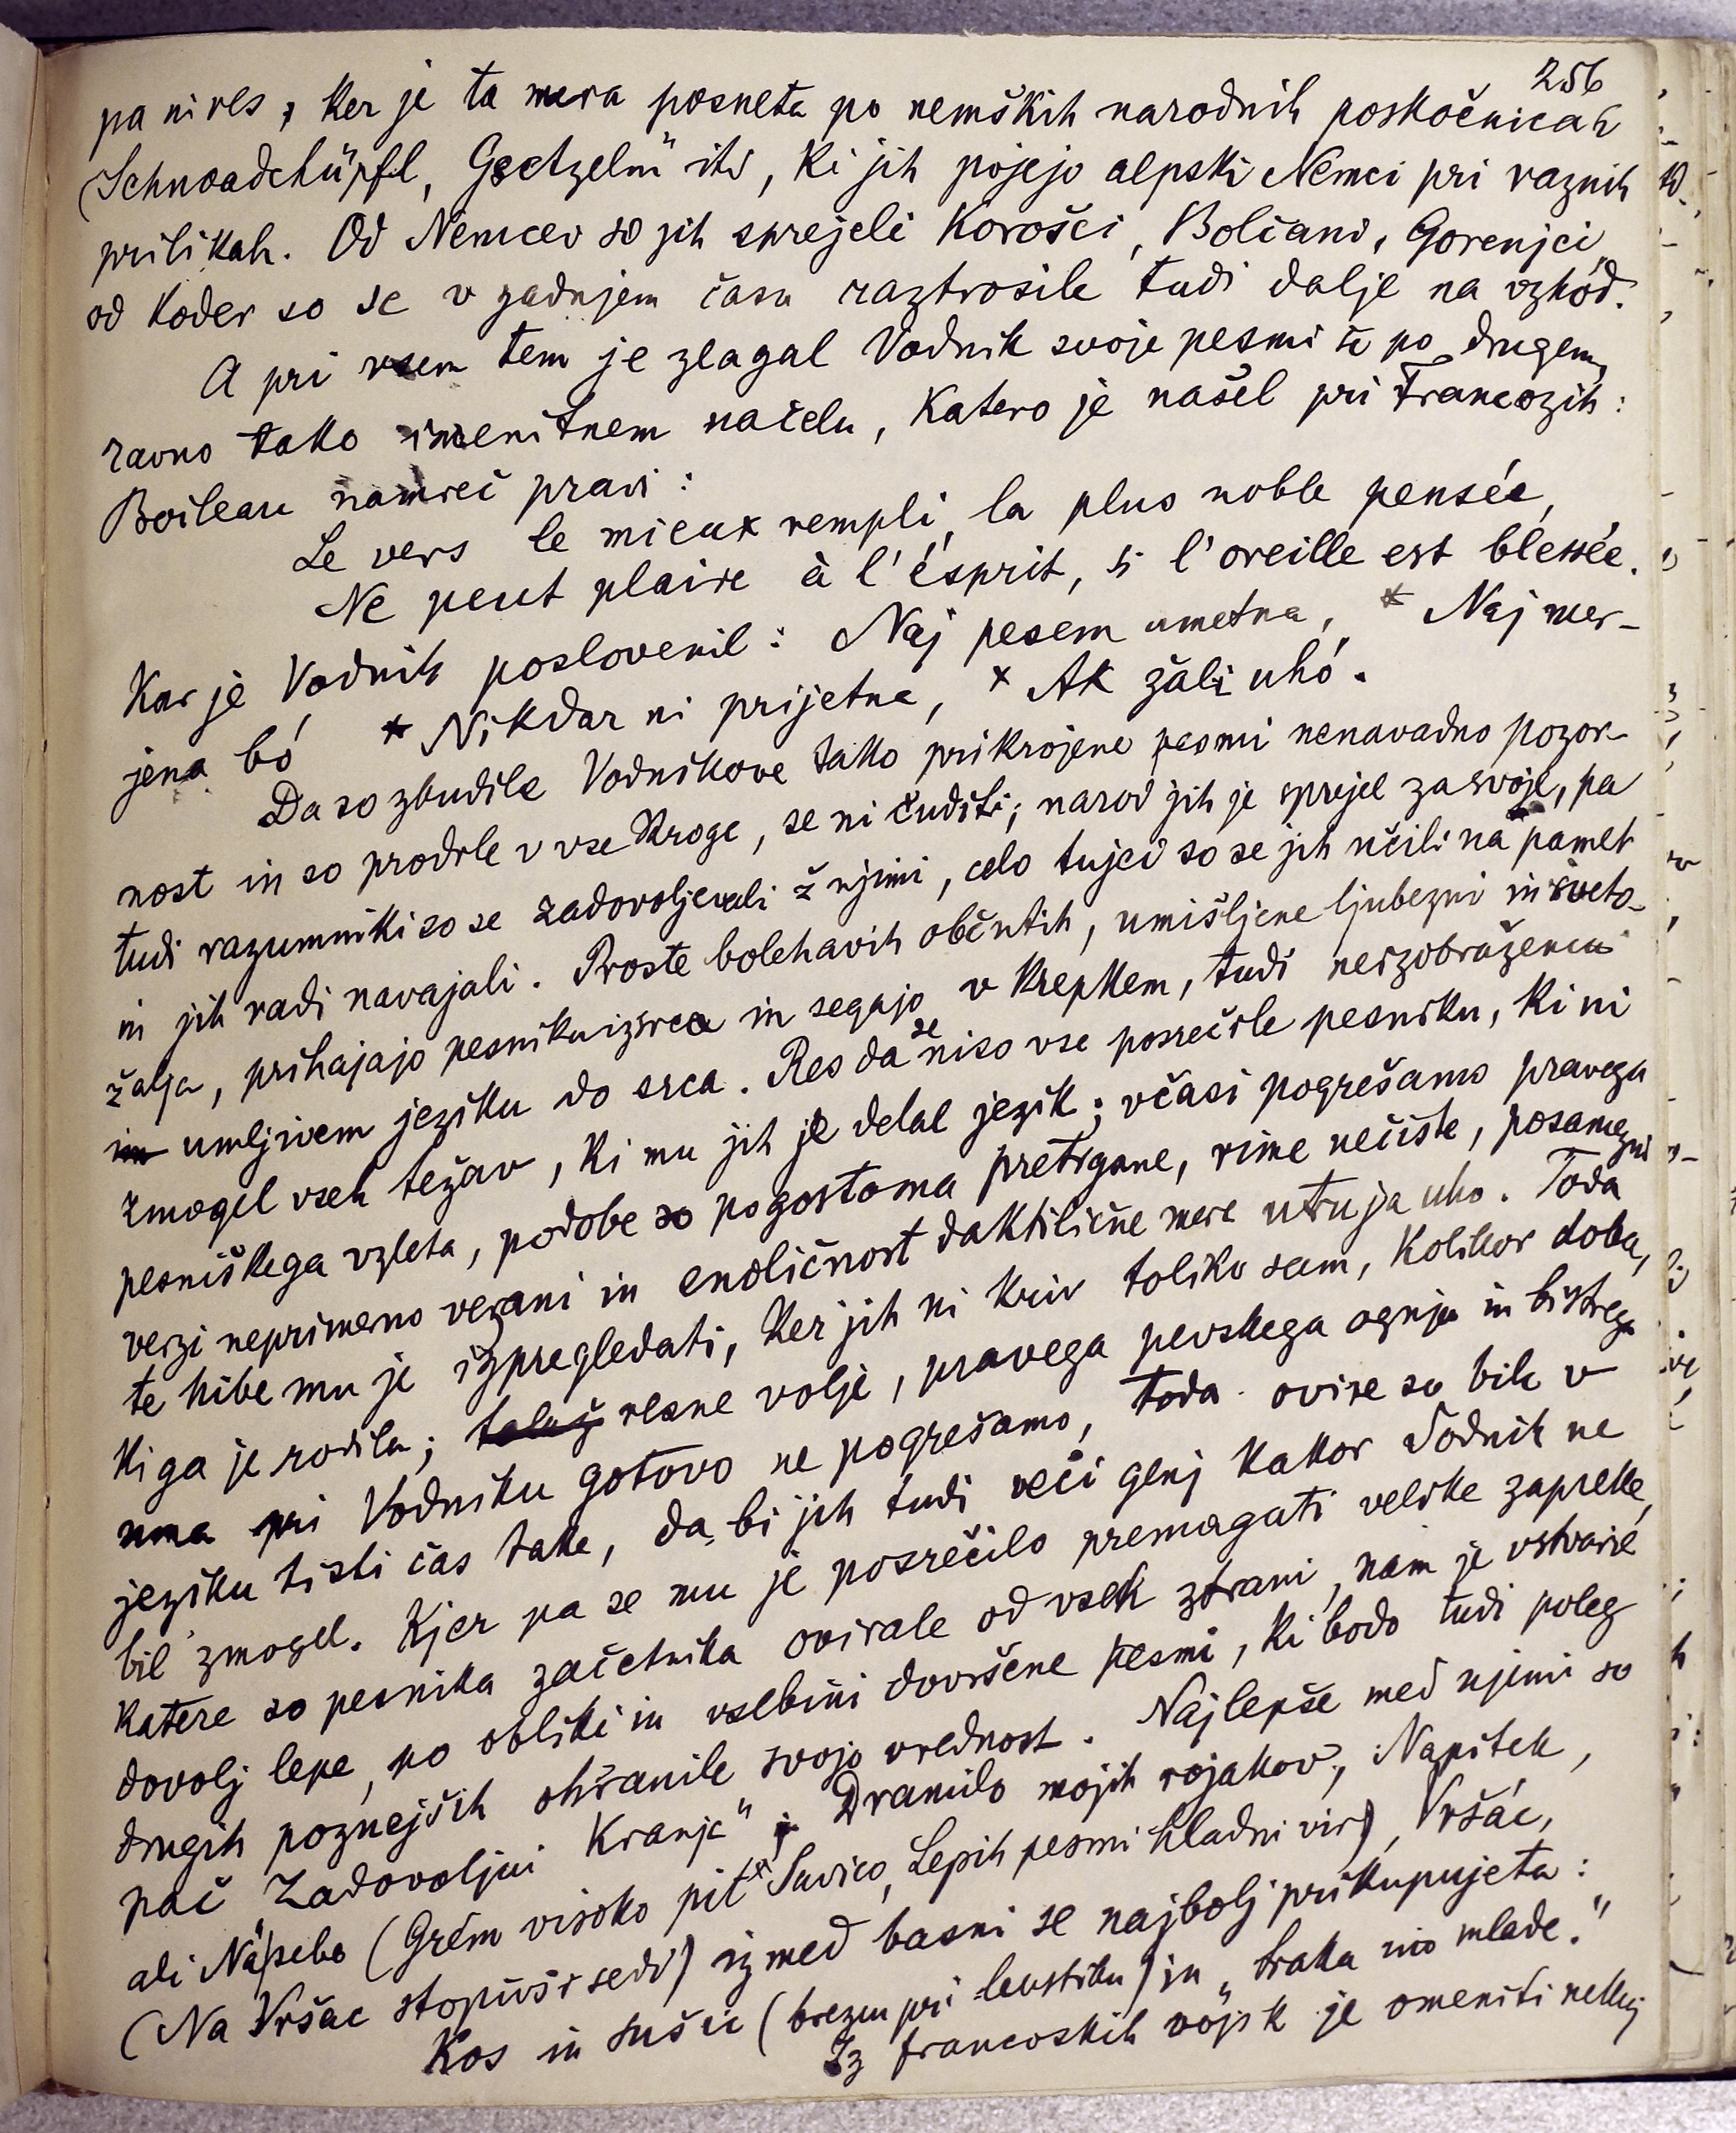 256
pa ni res, ker je ta mera posneta po nemških narodnih poskočnicah
(Schnoadchüpfl, Gsetzeln" itd, ki jih pojejo alpski Nemci pri raznih
prilikah. Od Nemcev so jih sprejeli Korošci, Bolčani, Gorenjci,
od koder so se v zadnjem času raztrosile tudi dalje na vzhod.
A pri vsem tem je zlagal Vodnik svoje pesmi še po drugem,
ravno tako imenitnem načelu, katero je našel pri Francozih:
Boileau namreč pravi:
Le vers le mieux rempli, la plus noble pensée,
Ne peut plaire à l'ésprit, si l'oreille est blessée.
Kar je Vodnik poslovenil: Naj pesem umetna, * Naj mer-
jena bó * Nikdar ni prijetna, * Ak žali uhó.
Da so zbudile Vodnikove tako prikrojene pesmi nenavadno pozor-
nost in so prodrle v vse kroge, se ni čuditi; narod jih je sprejel za svoje, pa
tudi razumniki so se zadovoljevali ž njimi, celo tujci so se jih učili na pamet
in jih radi navajali. Proste bolehavih občutih, umišljene ljubezni in sveto-
žalja, prihajajo pesniku iz srca in segajo v krepkem, tudi neizobražencu
im umljivem jeziku do srca. Res da se niso vse posrečile pesniku, ki ni
zmogel vseh težav, ki mu jih je delal jezik; včasi pogrešamo pravega
pesniškega vzleta, podobe so pogostoma pretrgane, rime nečiste, posamezni
verzi neprimerno vezani in enoličnost daktilične mere utruja uho. Toda
te hibe mu je izpregledati, ker jih ni kriv toliko sam, kolikor doba,
ki ga je rodila; resne volje, pravega pevskega ognja in bistrega
uma pri Vodniku gotovo ne pogrešamo, toda ovire so bile v
jeziku tisti čas take, da bi jih tudi veči genj kakor Vodnik ne
bil zmogel. Kjer pa se mu je posrečilo premagati velike zapreke,
katere so pesnika začetnika ovirale od vseh strani, nam je ustvaril
dovolj lepe, po obliki in vsebini dovršene pesmi, ki bodo tudi poleg
drugih poznejših ohranile svojo vrednost. Najlepše med njimi so
pač Zadovoljni Kranjc", Dramilo mojih rojakov, Napitek,
ali Nápebo (Grém visoko pit Savico, Lepih pesmi hladni vir), Vršác,
(Na Vršac stopivši sedi) izmed basni se najbolj prikupujeta:
Kos in sušic (brezen pri levstiku) in „sraka ino mlade."
Iz francoskih vojsk je omeniti nekaj